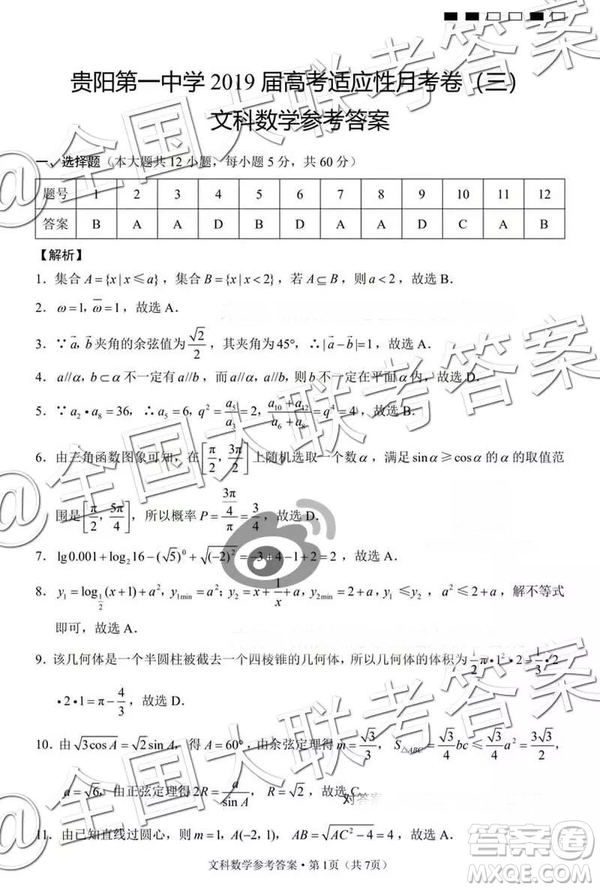 贵阳第一中学 2019 届高考适应性月考卷（三）
文科数学参考答案
一、选择题（本大题共 12 小题，每小题 5 分，共 60 分）
题号 1 2 3 4 5 6 7 8 9 10 11 12
答案 B A A D D A D C A B
【解析】
1．集合 A={x|x≤a}，集合 B={x|x<2}，若 A⊆B，则 a<2，故选 B．
2．ω=1, ω̄=1，故选 A．
3．∵a⃗, b⃗ 夹角的余弦值为 √2/2，其夹角为 45°，∴|a⃗−b⃗|=1，故选 A．
4．a//α，b⊂α 不一定有 a//b，a//b 则不一定在平面 α 内，故选 D．
5．∵a₂•a₈=36，∴a₅=6，q²=a₅/a₃=2，(a₁₀+a₁₂)/(a₆+a₈)=q⁴=4，故选
6．由三角函数图象可知，在 [π/2, 3π/2] 上随机选取一个数 α，满足 sin α≥cos α 的 α 的取值范
围是 [π/2, 5π/4]，所以概率 P=(3π/4)/π=3/4，故选 D．
7．lg0.001+log₂16−(√5)⁰+√(−2)²=−3+4−1+2=2，故选 A．
8．y₁=log_{1/2}(x+1)+a², y₁min=a²; y₂=x+1/x+a, y₂min=2+a，y₁≤y₂，a²≤2+a，解不等式
即可，故选 A．
9．该几何体是一个半圆柱被截去一个四棱锥的几何体，所以几何体的体积为 1/2π•1•2−1/3•2
•2•1=π−4/3，故选 D．
10．由 √3cos A=√2sin A，得 A=60°，由余弦定理得 m=√3/3，S△ABC=√3/4 bc≤√3/4 a²=3√3/2，
a=√6，由正弦定理得 2R=a/sin A，R=√2，故选 C．
对答案
11．由已知直线过圆心，则 m=1，A(−2, −1)，AB=√(AC²−4)=4，故选 A．
文科数学参考答案・第 1 页（共 7 页）
@全国大联考答案
@全国大联考答案
@全国大联考答案
答案圈
MXQE.COM